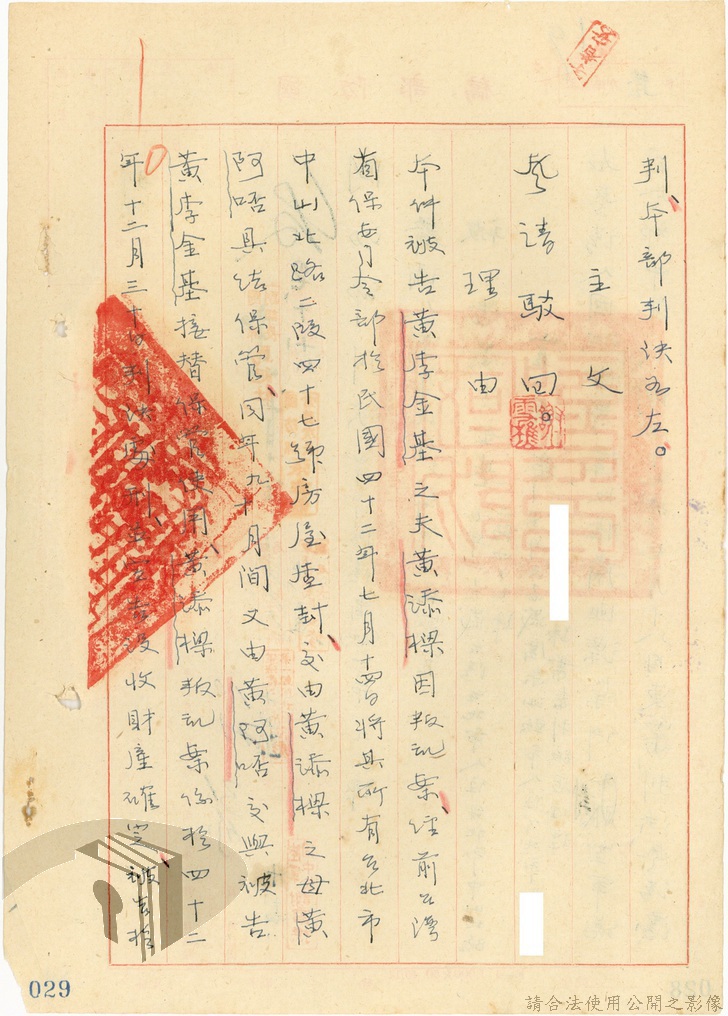 判、本部判決如左。
主文
聲請駁回。
理由
本件被告黃李金基之夫黃添樑因叛亂案、經前台灣
省保安司令部於民國四十二年七月十四日將其所有台北市
中山北路二段四十七號房屋查封、交由黃添樑之母黃
阿㖠具結保管、同年九、十月間又由黃阿㖠交與被告
黃李金基接替保管使用、黃添樑叛亂案係於四十二
年十二月三十日判決處刑並宣告沒收財產確定、被告於
029
請合法使用公開之影像